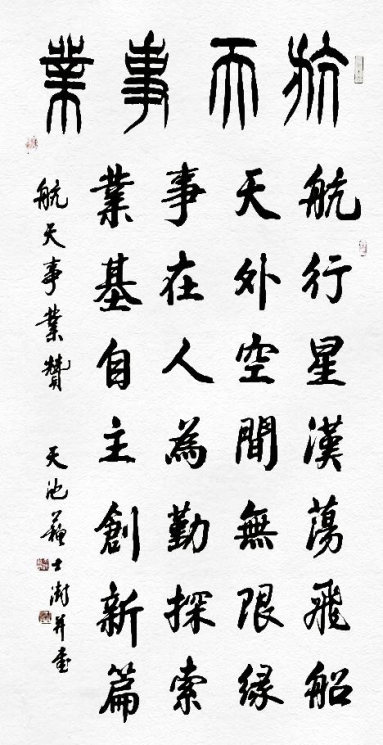 航天事業
航行星漢蕩飛船
天外空間無限緣
事在人為勤探索
業基自主創新篇
航天事業贊 天池蘇士澍并書